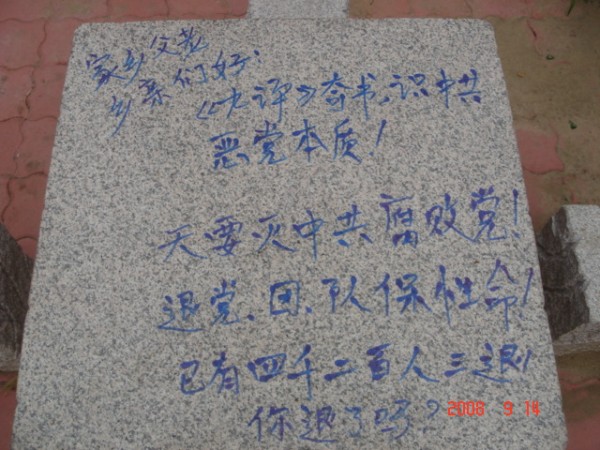 家乡父老
乡亲们好:
《九评》奇书,识中共
恶党本质!
天要灭中共腐败党!
退党、团、队保性命!
已有四千二百人三退!
你退了吗?
2008 9 14